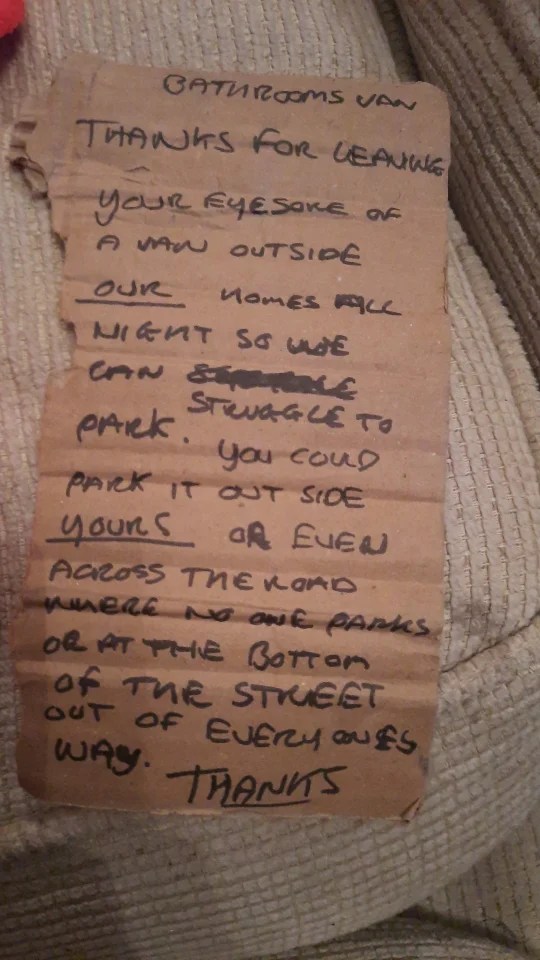 BATHROOMS VAN
THANKS FOR LEAVING
YOUR EYESORE OF
A VAN OUTSIDE
OUR HOMES ALL
NIGHT SO WE
CAN
STRUGGLE TO
PARK. YOU COULD
PARK IT OUT SIDE
YOURS OR EVEN
ACROSS THE ROAD
WHERE NO ONE PARKS
OR AT THE BOTTOM
OF THE STREET
OUT OF EVERYONES
WAY.
THANKS